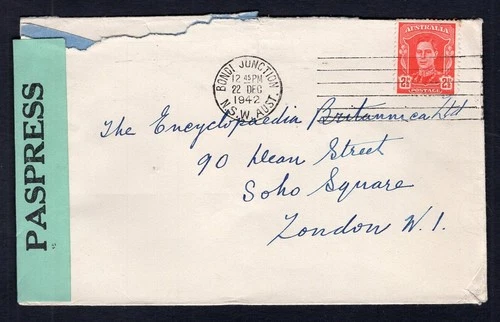 PASPRESS
BONDI JUNCTION
12 45 PM
22 DEC
1942
N.S.W. AUST.
AUSTRALIA
2½D
2½D
POSTAGE
The Encyclopaedia Britannica Ltd
90 Dean Street
Soho Square
London W.1.